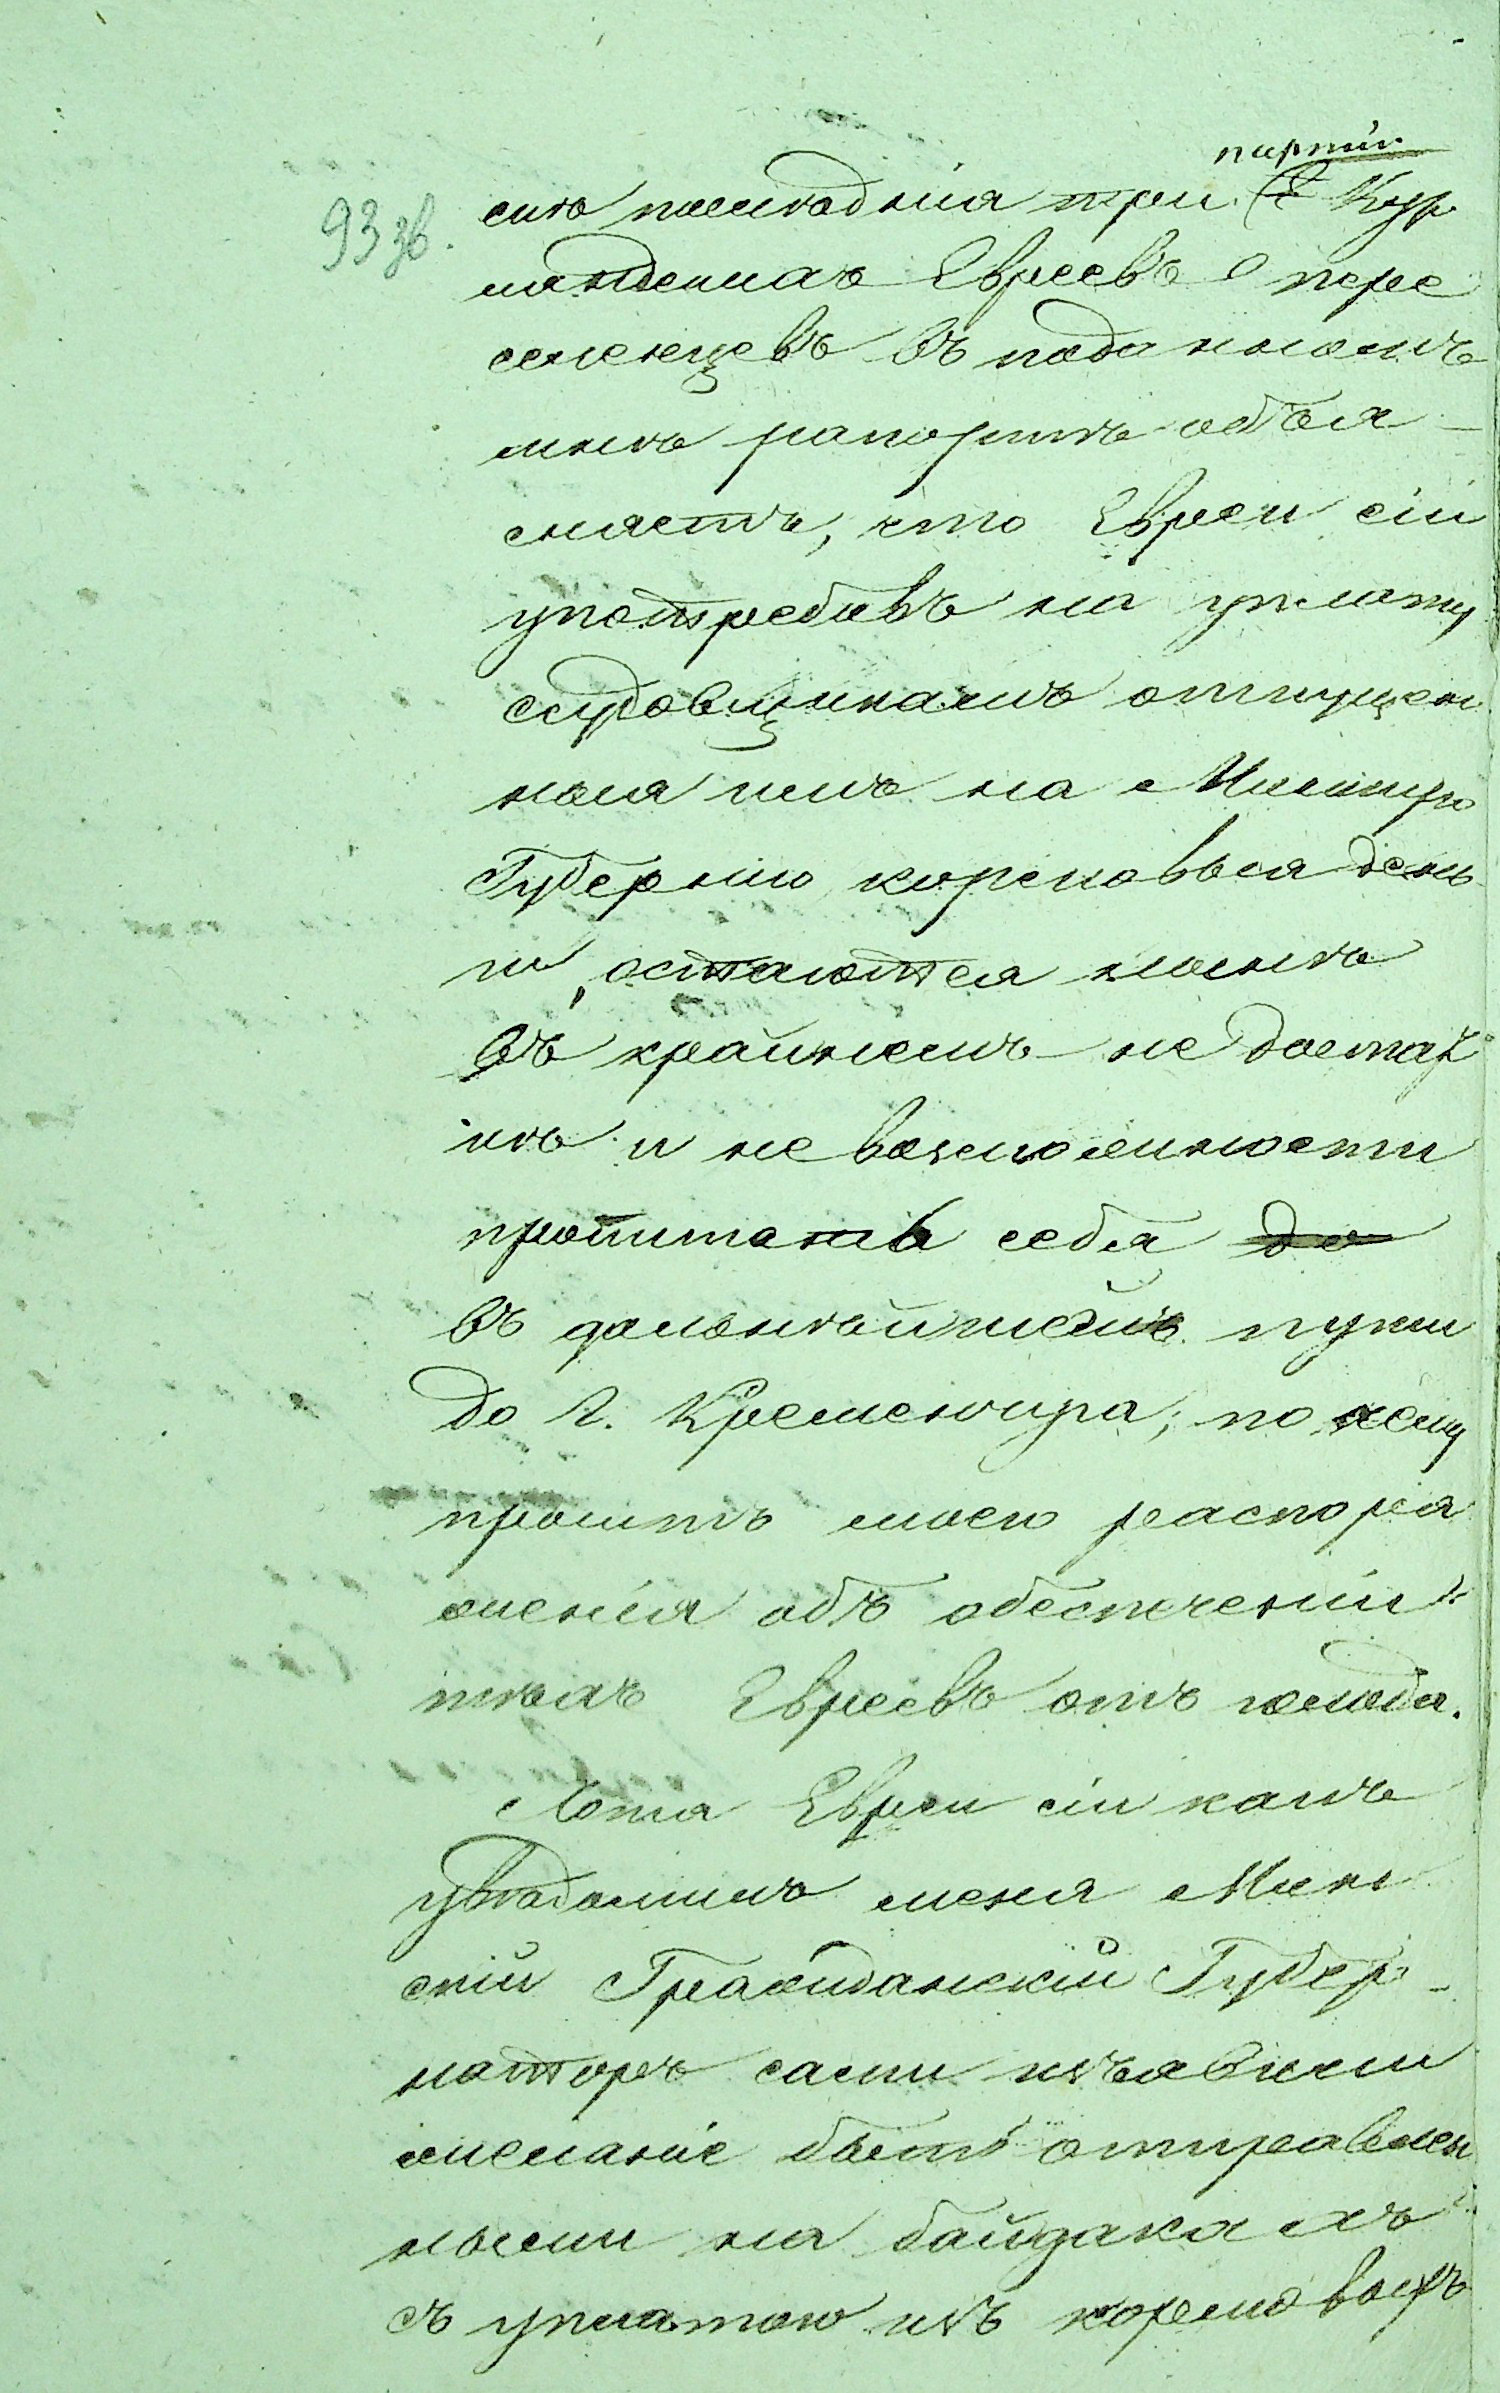 партіи
93 зв.
сить послѣдняя три Кур
ляндскихъ Евреевъ пере
селенцевъ въ поданномъ
мнѣ рапортѣ объя-
сняетъ, что Евреи сіи
употребивъ на уплату
судовщикамъ отпущен
ныя имъ на Минскую
Губернію кормовыя день
ги, остаются нынѣ
въ крайнемъ не достат
кѣ и не возможности
пропитать себя до
въ дальнѣйшемъ пути
до г. Кременчуга; по чему
проситъ моего распоря
женія объ обеспеченіи
тѣхъ Евреевъ отъ голода.
Хотя Евреи сіи какъ
увѣдомилъ меня Мин
скій Гражданскій Губер-
наторъ сами изъявили
желаніе быть отправлен
ными на байдакахъ
съ уплатою изъ кормовыхъ